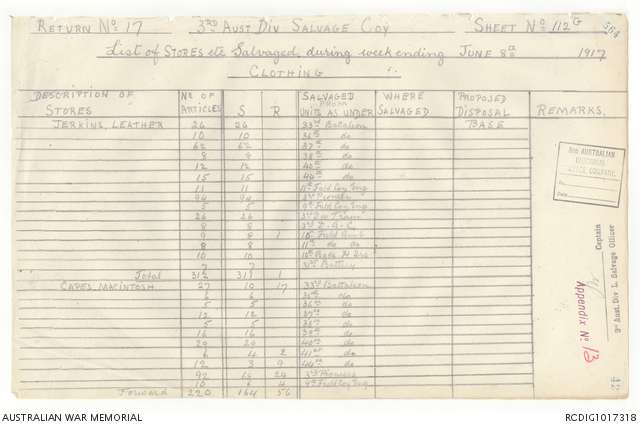 RETURN No 17 3RD AUST DIV SALVAGE COY SHEET No 112G 564
List of STORES etc Salvaged during week ending JUNE 8th 1917
CLOTHING
DESCRIPTION OF STORES No OF ARTICLES S R SALVAGED FROM UNITS AS UNDER WHERE SALVAGED PROPOSED DISPOSAL REMARKS.
JERKINS, LEATHER 26 26 33rd Battalion BASE
10 10 36th do
62 62 37th do
8 8 38th do
12 12 40th do
15 15 44th do
11 11 11th Field Coy Eng
94 94 3rd Pioneer
5 5 9th Field Coy Eng
26 26 3rd Div Train
8 8 3rd D.A.C.
9 8 1 10th Field Amb
8 8 11th do do
10 10 10th Bgde Hd Qrs
7 7 Battery
Total 312 311 1
CAPES, MACINTOSH 27 10 17 33rd Battalion
6 6 do
5 5 36th do
12 12 37th do
5 5 38th do
16 16 39th do
20 20 40th do
6 4 2 41st do
12 3 9 44th do
92 24 3rd Pioneers
10 6 4 9th Field Coy Eng
Forward 220 164 56
AUSTRALIAN
Date
Captain
3rd Aust. Div l. Salvage Officer
Appendix No 13
AUSTRALIAN WAR MEMORIAL RCDIG1017318